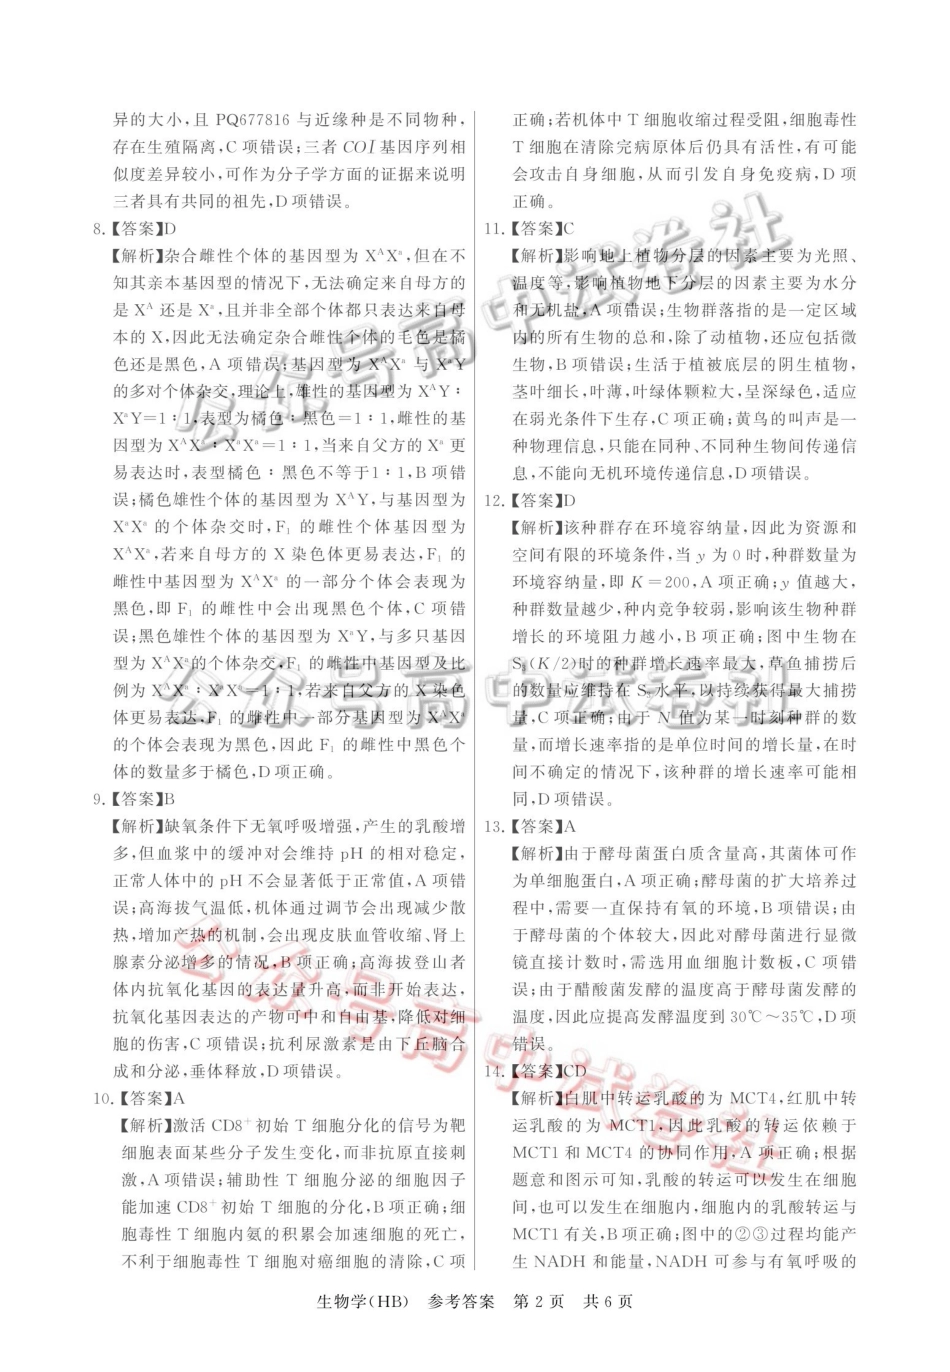 异的大小,且 PQ677816 与近缘种是不同物种,
存在生殖隔离,C 项错误;三者 COⅠ 基因序列相
似度差异较小,可作为分子学方面的证据来说明
三者具有共同的祖先,D 项错误。
8.【答案】D
【解析】杂合雌性个体的基因型为 XᴬXᵃ,但在不
知其亲本基因型的情况下,无法确定来自母方的
是 Xᴬ 还是 Xᵃ,且并非全部个体都只表达来自母
本的 X,因此无法确定杂合雌性个体的毛色是橘
色还是黑色,A 项错误;基因型为 XᴬXᵃ 与 XᵃY
的多对个体杂交,理论上,雄性的基因型为 XᴬY∶
XᵃY=1∶1,表型为橘色∶黑色=1∶1,雌性的基
因型为 XᴬXᵃ∶XᵃXᵃ=1∶1,当来自父方的 Xᵃ 更
易表达时,表型橘色∶黑色不等于1∶1,B 项错
误;橘色雄性个体的基因型为 XᴬY,与基因型为
XᵃXᵃ 的个体杂交时,F₁ 的雌性个体基因型为
XᴬXᵃ,若来自母方的 X 染色体更易表达,F₁ 的
雌性中基因型为 XᴬXᵃ 的一部分个体会表现为
黑色,即 F₁ 的雌性中会出现黑色个体,C 项错
误;黑色雄性个体的基因型为 XᵃY,与多只基因
型为 XᴬXᵃ的个体杂交,F₁ 的雌性中基因型及比
例为 XᴬXᵃ∶XᵃXᵃ=1∶1,若来自父方的 X 染色
体更易表达,F₁ 的雌性中一部分基因型为 XᴬXᵃ
的个体会表现为黑色,因此 F₁ 的雌性中黑色个
体的数量多于橘色,D 项正确。
9.【答案】B
【解析】缺氧条件下无氧呼吸增强,产生的乳酸增
多,但血浆中的缓冲对会维持 pH 的相对稳定,
正常人体中的 pH 不会显著低于正常值,A 项错
误;高海拔气温低,机体通过调节会出现减少散
热,增加产热的机制,会出现皮肤血管收缩、肾上
腺素分泌增多的情况,B 项正确;高海拔登山者
体内抗氧化基因的表达量升高,而非开始表达,
抗氧化基因表达的产物可中和自由基,降低对细
胞的伤害,C 项错误;抗利尿激素是由下丘脑合
成和分泌,垂体释放,D 项错误。
10.【答案】A
【解析】激活 CD8⁺ 初始 T 细胞分化的信号为靶
细胞表面某些分子发生变化,而非抗原直接刺
激,A 项错误;辅助性 T 细胞分泌的细胞因子
能加速 CD8⁺ 初始 T 细胞的分化,B 项正确;细
胞毒性 T 细胞内氨的积累会加速细胞的死亡,
不利于细胞毒性 T 细胞对癌细胞的清除,C 项
正确;若机体中 T 细胞收缩过程受阻,细胞毒性
T 细胞在清除完病原体后仍具有活性,有可能
会攻击自身细胞,从而引发自身免疫病,D 项
正确。
11.【答案】C
【解析】影响地上植物分层的因素主要为光照、
温度等,影响植物地下分层的因素主要为水分
和无机盐,A 项错误;生物群落指的是一定区域
内的所有生物的总和,除了动植物,还应包括微
生物,B 项错误;生活于植被底层的阴生植物,
茎叶细长,叶薄,叶绿体颗粒大,呈深绿色,适应
在弱光条件下生存,C 项正确;黄鸟的叫声是一
种物理信息,只能在同种、不同种生物间传递信
息,不能向无机环境传递信息,D 项错误。
12.【答案】D
【解析】该种群存在环境容纳量,因此为资源和
空间有限的环境条件,当 y 为 0 时,种群数量为
环境容纳量,即 K=200,A 项正确;y 值越大,
种群数量越少,种内竞争较弱,影响该生物种群
增长的环境阻力越小,B 项正确;图中生物在
(K/2)时的种群增长速率最大,草鱼捕捞后
的数量应维持在 水平,以持续获得最大捕捞
量,C 项正确;由于 N 值为某一时刻种群的数
量,而增长速率指的是单位时间的增长量,在时
间不确定的情况下,该种群的增长速率可能相
同,D 项错误。
13.【答案】A
【解析】由于酵母菌蛋白质含量高,其菌体可作
为单细胞蛋白,A 项正确;酵母菌的扩大培养过
程中,需要一直保持有氧的环境,B 项错误;由
于酵母菌的个体较大,因此对酵母菌进行显微
镜直接计数时,需选用血细胞计数板,C 项错
误;由于醋酸菌发酵的温度高于酵母菌发酵的
温度,因此应提高发酵温度到 30℃～35℃,D 项
错误。
14.【答案】CD
【解析】白肌中转运乳酸的为 MCT4,红肌中转
运乳酸的为 MCT1,因此乳酸的转运依赖于
MCT1 和 MCT4 的协同作用,A 项正确;根据
题意和图示可知,乳酸的转运可以发生在细胞
间,也可以发生在细胞内,细胞内的乳酸转运与
MCT1 有关,B 项正确;图中的②③过程均能产
生 NADH 和能量,NADH 可参与有氧呼吸的
公众号高中试卷社
公众号高中试卷社
公众号高中试卷社
生物学(HB) 参考答案 第 2 页 共 6 页